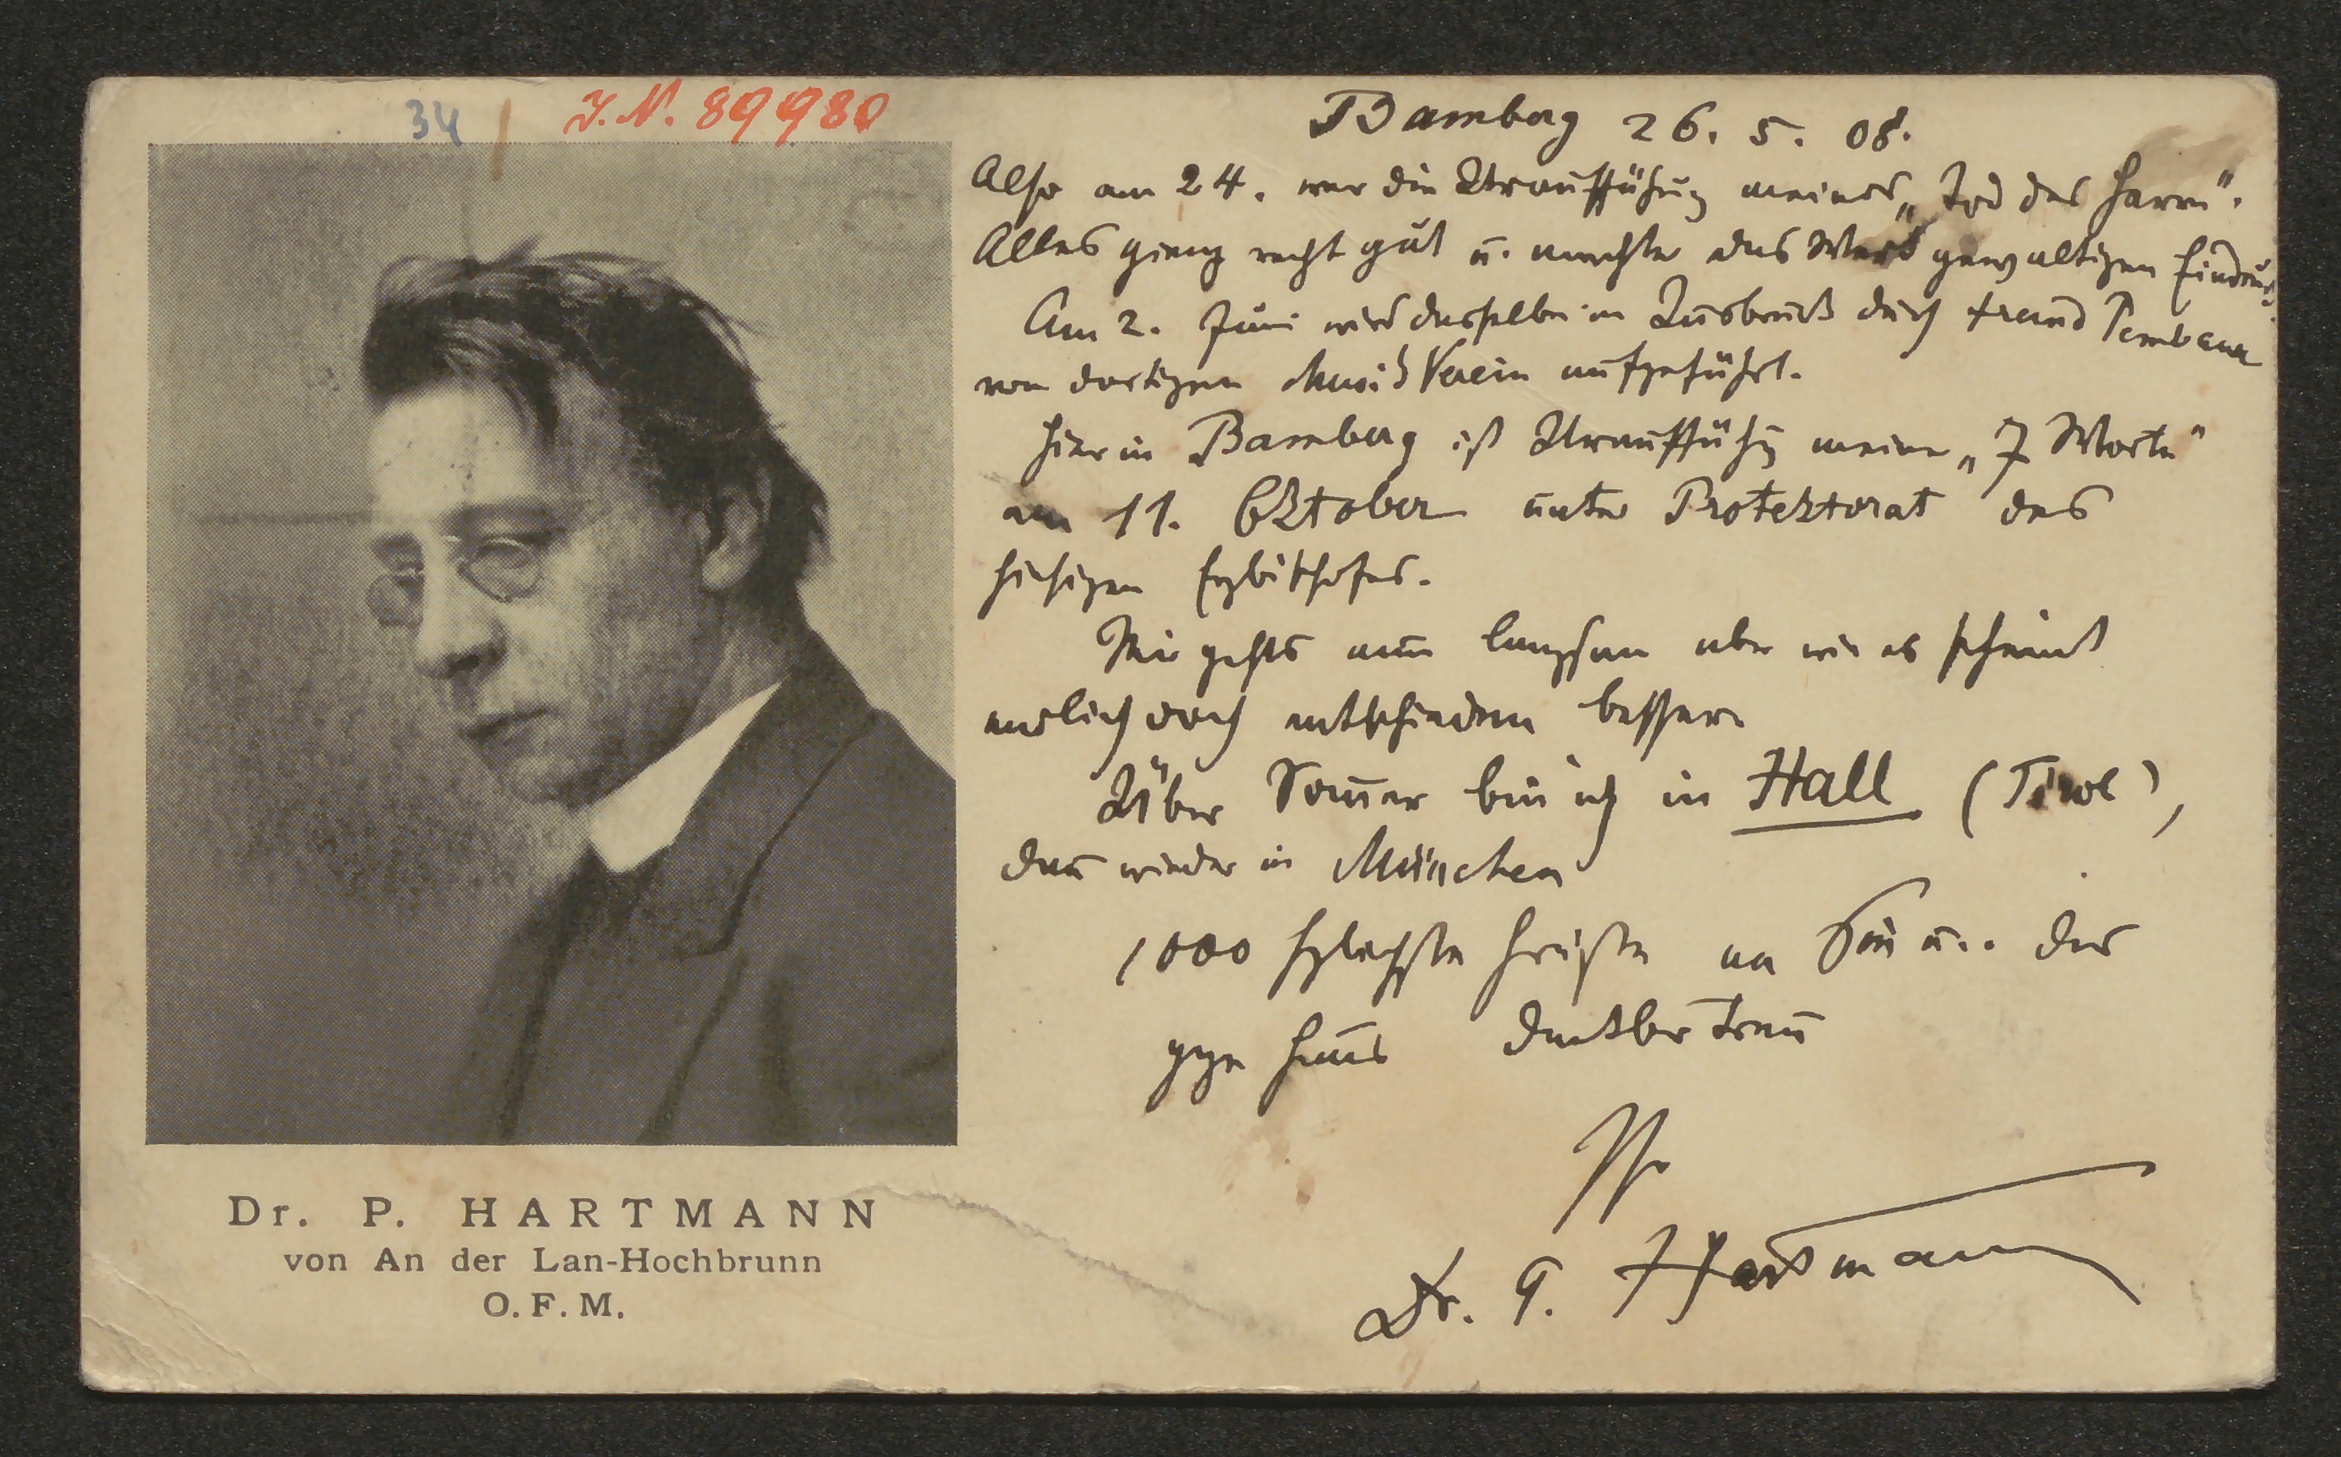 34 J. N. 89980
Bamberg 26. 5. 08.
Also am 24. war die Uraufführung meines „Tod des Herrn".
Alles gieng recht gut u. machte das Werk gewaltigen Eindruck.
Am 2. Juni wird dasselbe in Innsbruck durch Freund Pembaur
vom dortigen Musik Verein aufgeführt.
Hier in Bamberg ist Uraufführg meiner „7 Worte"
am 11. Oktober unter Protektorat des
hiesigen Erzbischofes.
Mir gehts nun langsam aber wie es scheint
endlich doch entschieden besser.
Über Som̄er bin ich in Hall (Tirol),
dan̄ wieder in München
1000 herzlichste Grüsse an Sie u. das
gze Haus dankbar treu
Ihr
Dr. P. Hartmann
Dr. P. HARTMANN
von An der Lan-Hochbrunn
O. F. M.